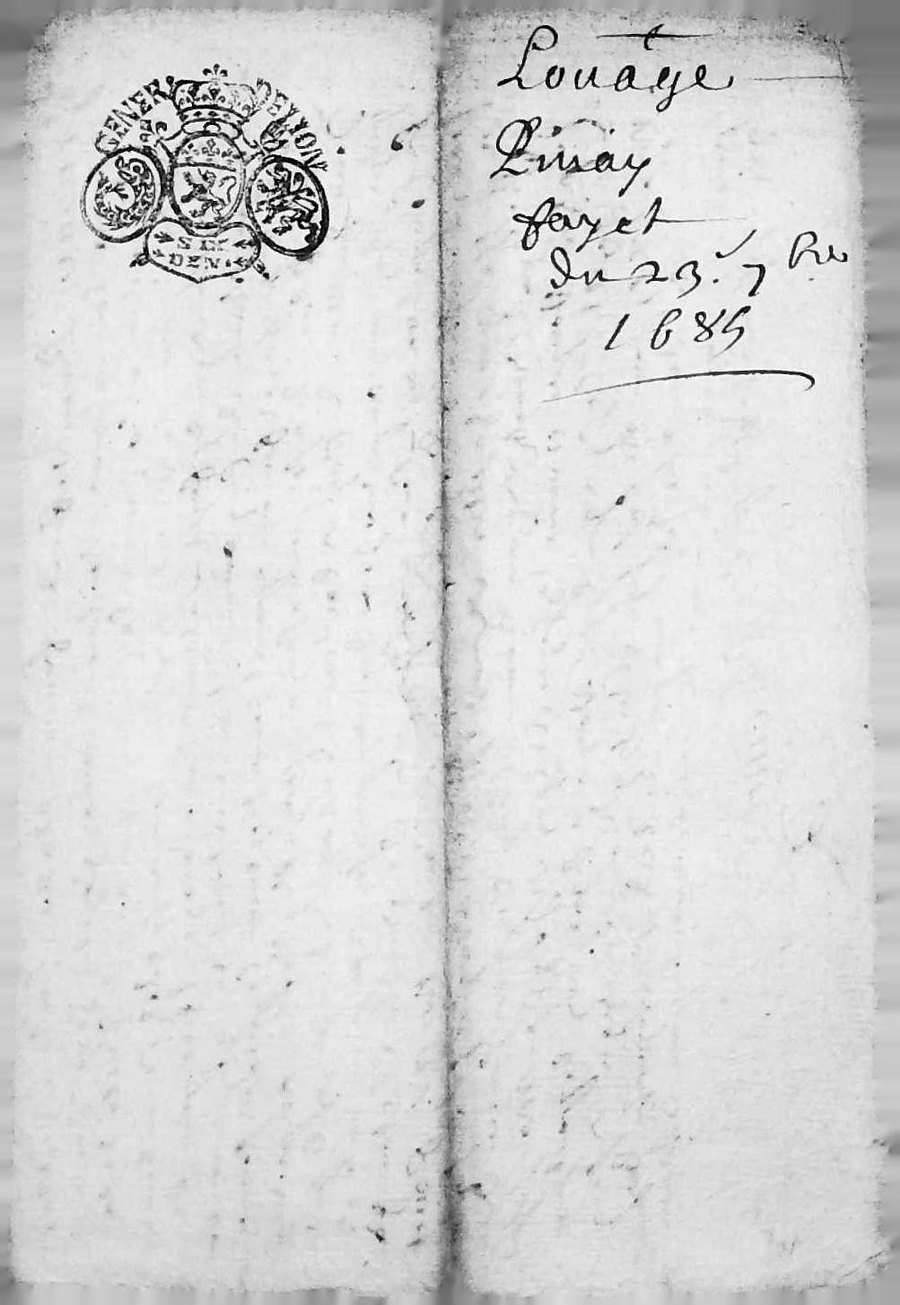 GENER DE LION
S DE
DEN.
Louage
Pinay
fayet
du 23. 7bre
1685